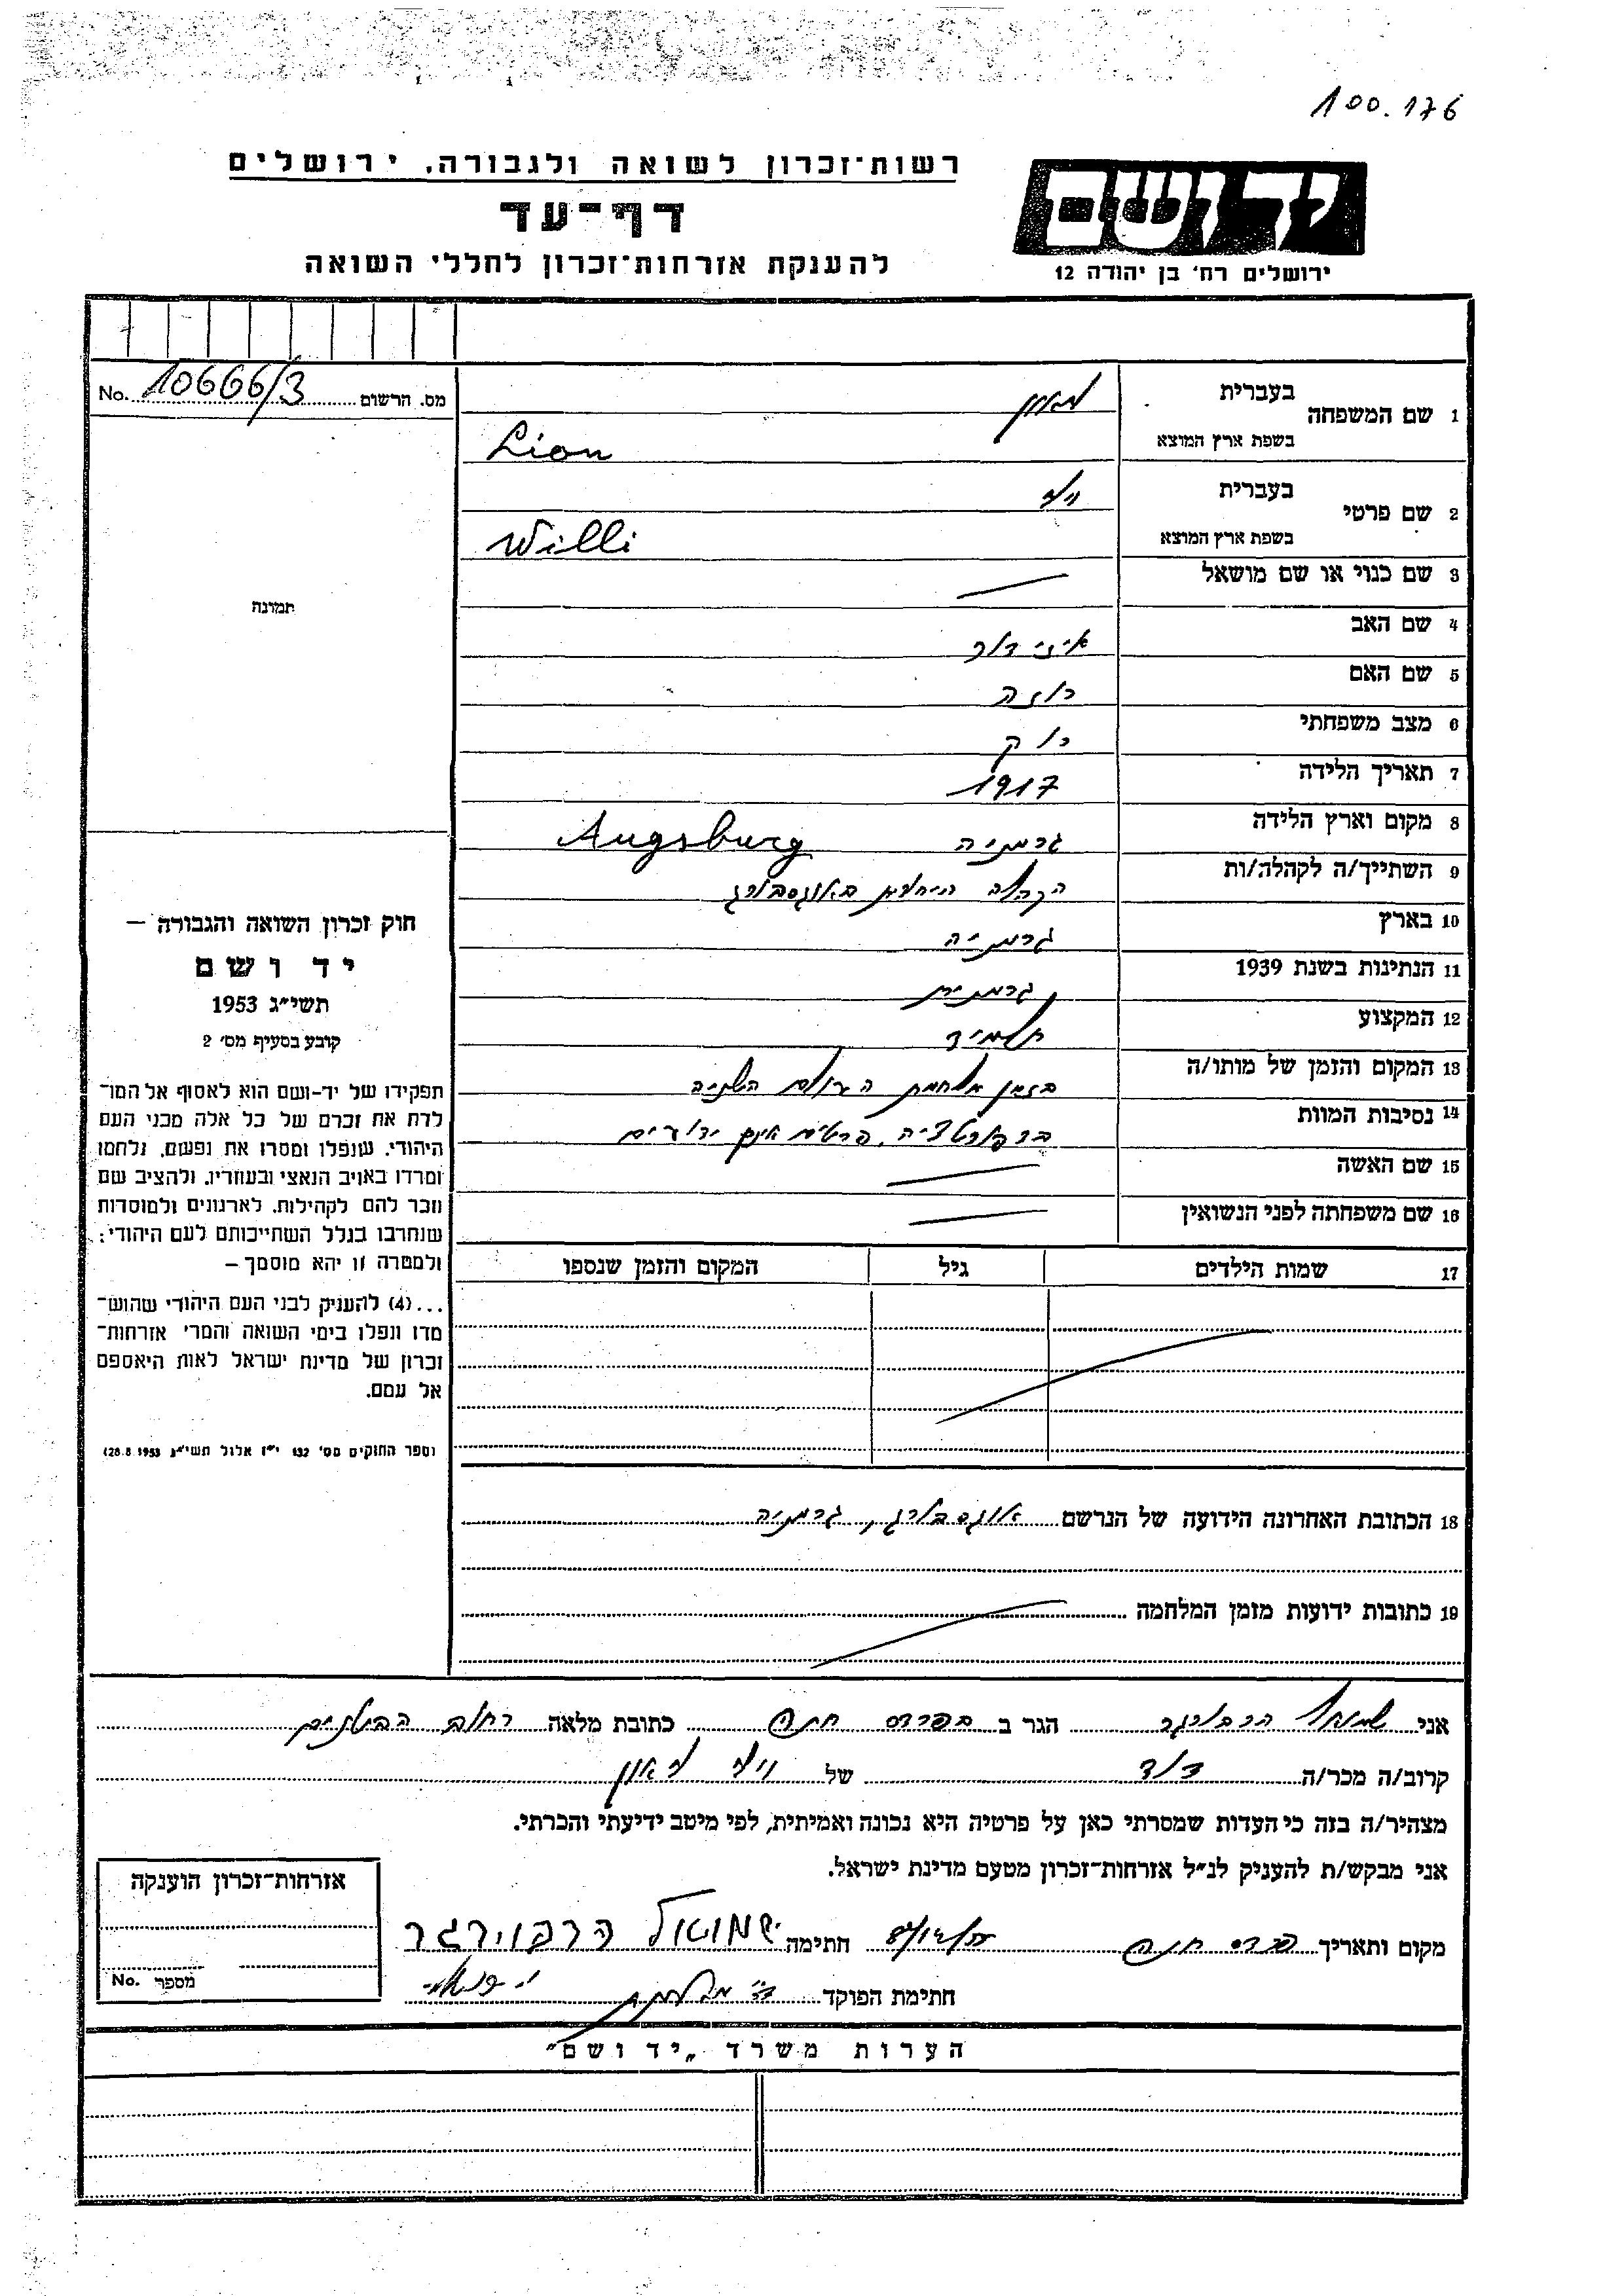 100.176
רשות־זכרון לשואה ולגבורה, ירושלים
דף־עד
להענקת אזרחות־זכרון לחללי השואה
יד ושם
ירושלים רח' בן יהודה 12
No. 10666/3 מס. הרשום
1 שם המשפחה בעברית ליאון
בשפת ארץ המוצא Lion
2 שם פרטי בעברית וילי
בשפת ארץ המוצא Willi
3 שם כנוי או שם מושאל —
4 שם האב איזידור
5 שם האם רוזה
6 מצב משפחתי רוק
7 תאריך הלידה 1917
8 מקום וארץ הלידה גרמניה Augsburg
9 השתייך/ה לקהלה/ות הקהלה היהודית באוגסבורג
10 בארץ גרמניה
11 הנתינות בשנת 1939 גרמנית
12 המקצוע תלמיד
13 המקום והזמן של מותו/ה בזמן מלחמת העולם השניה
14 נסיבות המוות בדפורטציה. פרטים אינם ידועים
15 שם האשה —
16 שם משפחתה לפני הנשואין —
17 שמות הילדים גיל המקום והזמן שנספו
18 הכתובת האחרונה הידועה של הנרשם אוגסבורג, גרמניה
19 כתובות ידועות מזמן המלחמה
תמונה
חוק זכרון השואה והגבורה —
יד ושם
תשי״ג 1953
קובע בסעיף מס' 2
תפקידו של יד-ושם הוא לאסוף אל המו־
לדת את זכרם של כל אלה מבני העם
היהודי, שנפלו ומסרו את נפשם, נלחמו
ומרדו באויב הנאצי ובעוזריו, ולהציב שם
וזכר להם לקהילות, לארגונים ולמוסדות
שנחרבו בגלל השתייכותם לעם היהודי;
ולמטרה זו יהא מוסמך —
...(4) להעניק לבני העם היהודי שהוש־
מדו ונפלו בימי השואה והמרי אזרחות־
זכרון של מדינת ישראל לאות היאספם
אל עמם.
(ספר החוקים מס' 132 י״ז אלול תשי״ג 28.8.1953)
אני שמואל הרבורגר הגר ב בפרדס חנה כתובת מלאה רחוב הבוטנים
קרוב/ה מכר/ה דוד של וילי ליאון
מצהיר/ה בזה כי העדות שמסרתי כאן על פרטיה היא נכונה ואמיתית, לפי מיטב ידיעתי והכרתי.
אני מבקש/ת להעניק לנ״ל אזרחות־זכרון מטעם מדינת ישראל.
מקום ותאריך פרדס חנה חתימה שמואל הרבורגר
חתימת הפוקד
אזרחות־זכרון הוענקה
No. מספר
הערות משרד „יד ושם״